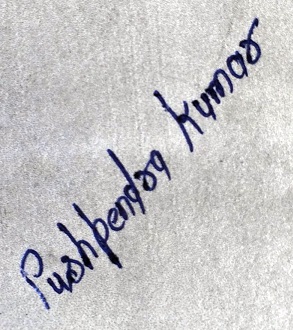 Pushpendra Kumar